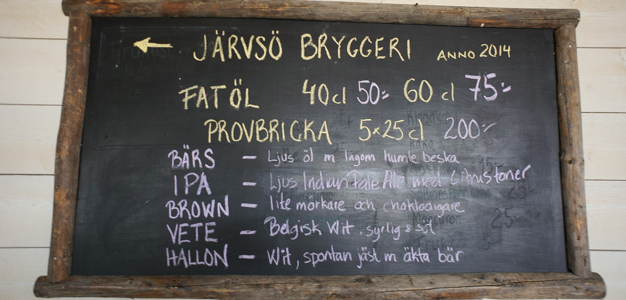 JÄRVSÖ BRYGGERI ANNO 2014
FATÖL 40cl 50:- 60 cl 75:-
PROVBRICKA 5x25cl 200:-
BÄRS – Ljus öl m lagom humle beska
IPA – Ljus Indian Pale Ale med Citrustoner
BROWN – lite mörkare och chokladigare
VETE – Belgisk Wit, syrlig & söt
HALLON – Wit, spontan jäst m äkta bär